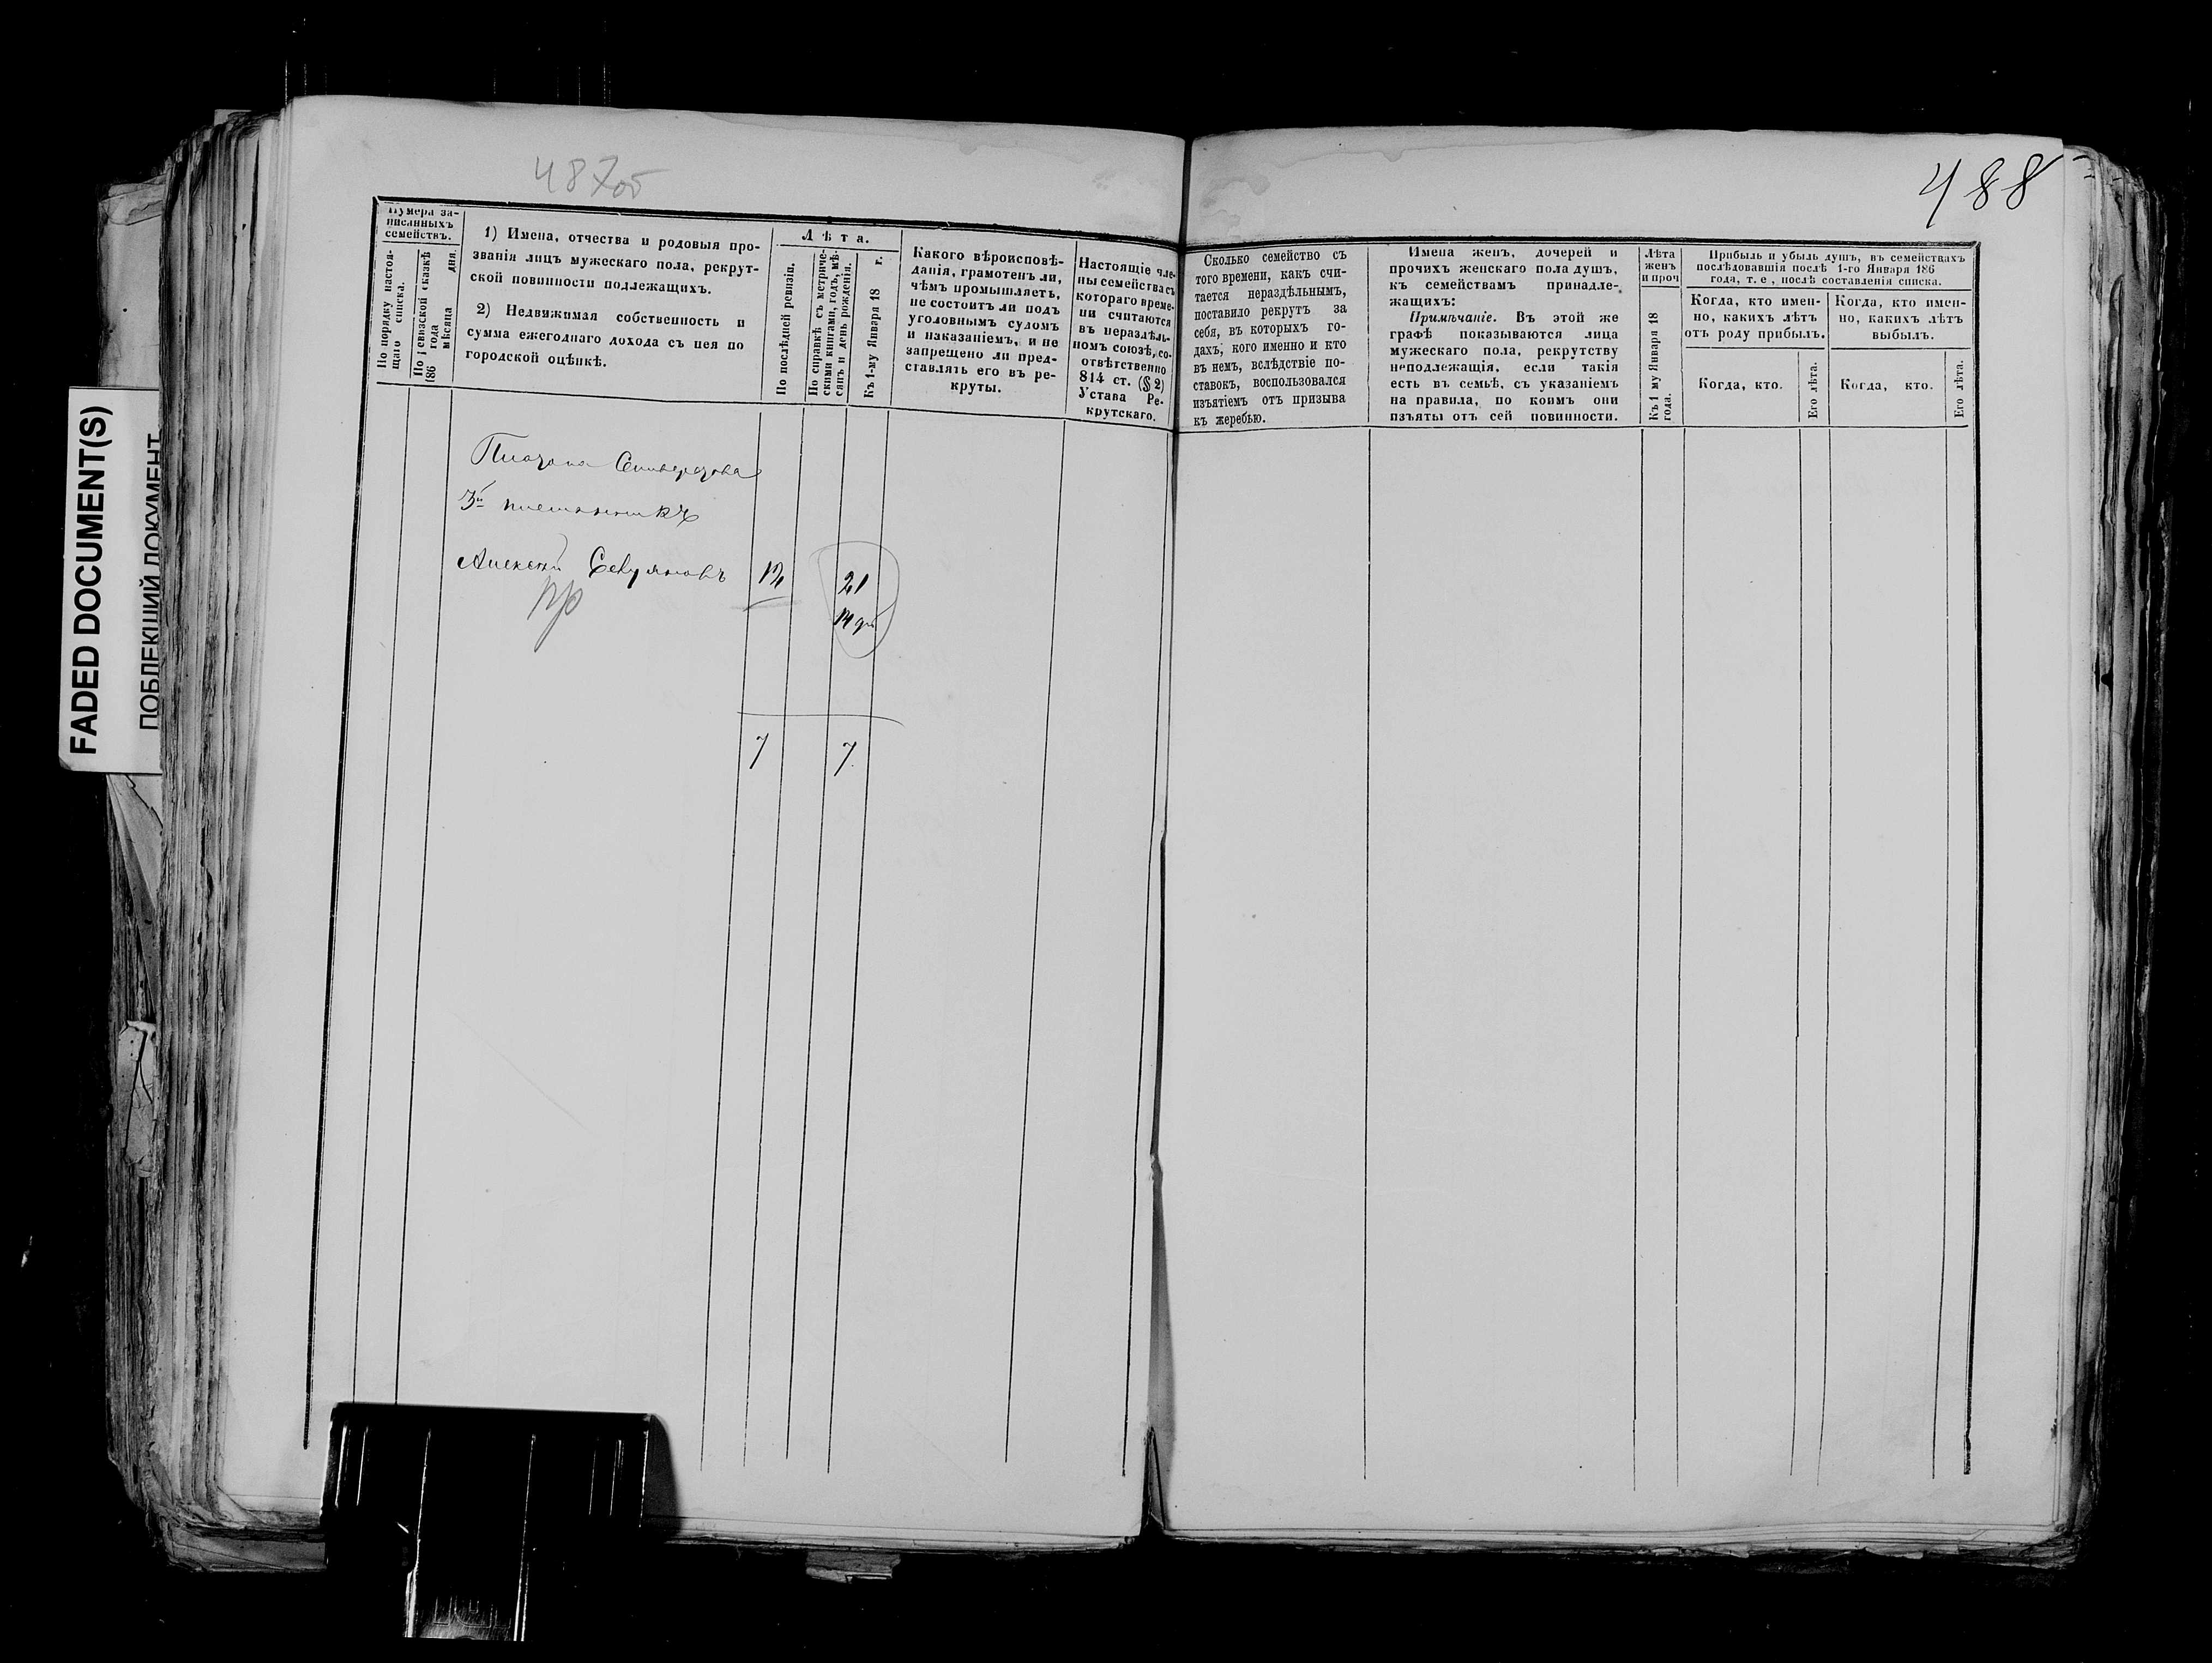 FADED DOCUMENT(S)
ПОБЛЕКШИЙ ДОКУМЕНТ
487об
488
Нумера за-
писанныхъ
семействъ.
По порядку настоя-
щаго списка.
По ревизской сказкѣ
186 года
мѣсяца дня.
1) Имена, отчества и родовыя про-
званія лицъ мужескаго пола, рекрут-
ской повинности подлежащихъ.
2) Недвижимая собственность и
сумма ежегоднаго дохода съ нея по
городской оцѣнкѣ.
Лѣта.
По послѣдней ревизіи.
По справкѣ съ метриче-
скими книгами, годъ, мѣ-
сяцъ и день рожденія.
Къ 1-му Января 18 г.
Какого вѣроисповѣ-
данія, грамотенъ ли,
чѣмъ промышляетъ,
не состоитъ ли подъ
уголовнымъ судомъ
и наказаніемъ, и не
запрещено ли пред-
ставлять его въ ре-
круты.
Настоящіе чле-
ны семейства съ
котораго време-
ни считаются
въ нераздѣль-
номъ союзѣ, со-
отвѣтственно
814 ст. (§ 2)
Устава Ре-
крутскаго.
Сколько семейство съ
того времени, какъ счи-
тается нераздѣльнымъ,
поставило рекрутъ за
себя, въ которыхъ го-
дахъ, кого именно и кто
въ немъ, вслѣдствіе по-
ставокъ, воспользовался
изъятіемъ отъ призыва
къ жеребью.
Имена женъ, дочерей и
прочихъ женскаго пола душъ,
къ семействамъ принадле-
жащихъ:
Примѣчаніе. Въ этой же
графѣ показываются лица
мужескаго пола, рекрутству
неподлежащія, если такія
есть въ семьѣ, съ указаніемъ
на правила, по коимъ они
изъяты отъ сей повинности.
Лѣта
женъ
и проч
Къ 1 му Января 18
года.
Прибыль и убыль душъ, въ семействахъ
послѣдовавшія послѣ 1-го Января 186
года, т. е , послѣ составленія списка.
Когда, кто имен-
но, какихъ лѣтъ
отъ роду прибылъ.
Когда, кто имен-
но, какихъ лѣтъ
выбылъ.
Когда, кто.
Его лѣта.
Когда, кто.
Его лѣта.
3й племянникъ
Алексѣй 12 21
7 7